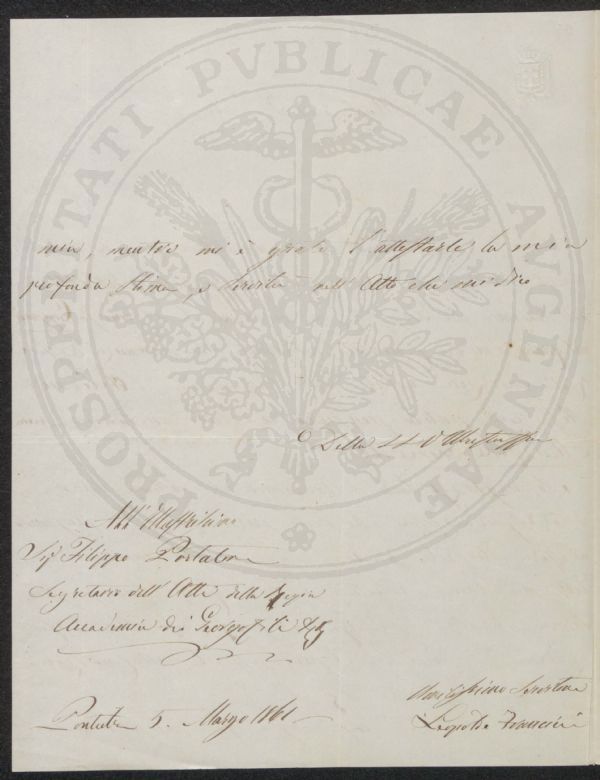 PROSPERITATI PVBLICAE AVGENDAE
mia, mentre mi è grato l'attestarle la mia
profonda Stima, e Servitù nell'Atto che mi dico
Della
All'Illustrissimo
Sig Filippo
Segretario dell'Atti della Regia
Accademia dei Georgofili
5. Marzo 1861
Servitore
Leopoldo